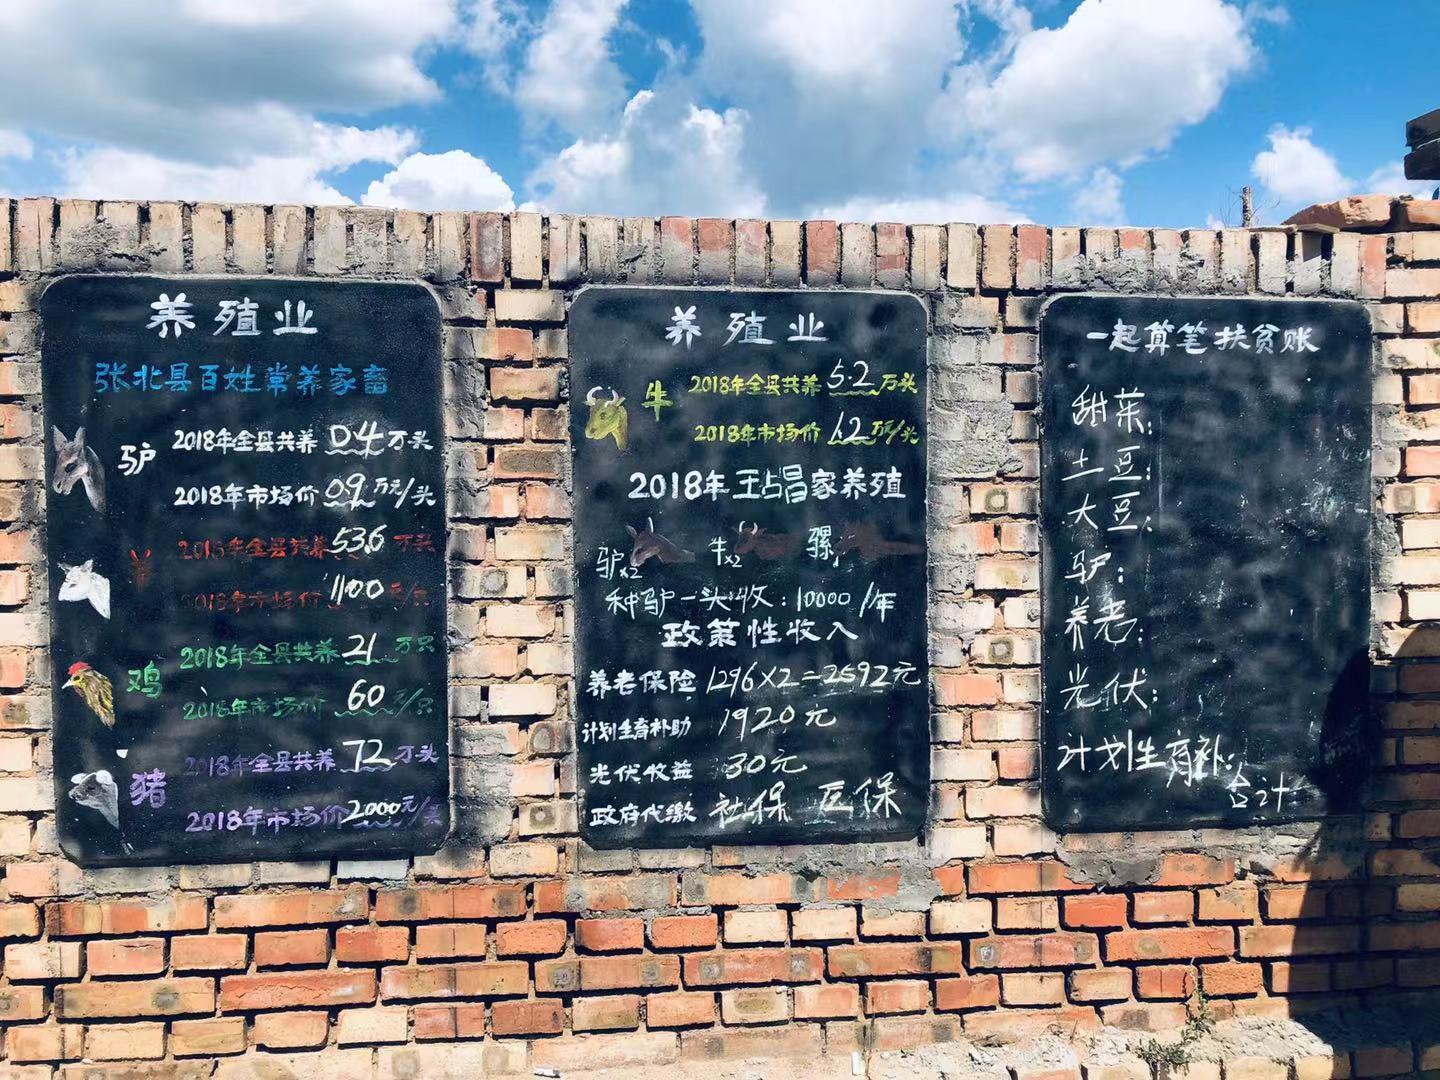 养殖业
张北县百姓常养家畜
驴 2018年全县共养 0.4 万头
2018年市场价 0.9 万元/头
羊 2018年全县共养 53.6 万头
2018年市场价 1100 元/只
鸡 2018年全县共养 21 万只
2018年市场价 60 元/只
猪 2018年全县共养 72 万头
2018年市场价 2000元/头
养殖业
牛 2018年全县共养 5.2 万头
2018年市场价 1.2 万元/头
2018年王占昌家养殖
驴x2 牛x2 骡1
种驴一头收:10000/年
政策性收入
养老保险 1296×2=2592元
计划生育补助 1920元
光伏收益 30元
政府代缴 社保 医保
一起算笔扶贫账
甜菜:
土豆:
大豆:
驴:
养老:
光伏:
计划生育补:
合计